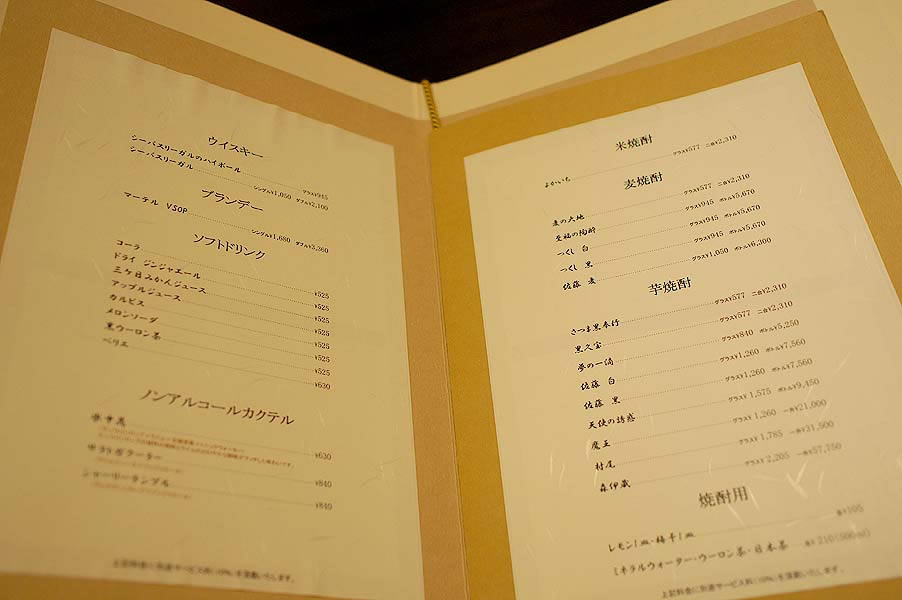 ウイスキー
シーバスリーガルのハイボール グラス¥945
シーバスリーガル シングル¥1,050 ダブル¥2,100
ブランデー
マーテル VSOP シングル¥1,680 ダブル¥3,360
ソフトドリンク
コーラ ¥525
ドライ ジンジャエール ¥525
三ケ日みかんジュース ¥525
アップルジュース ¥525
カルピス ¥525
メロンソーダ ¥525
黒ウーロン茶 ¥525
ペリエ ¥630
ノンアルコールカクテル
¥630
サラトガクーラー ¥840
シャーリーテンプル ¥840
上記料金に別途サービス料(10%)を頂戴いたします。
米焼酎
よかいち グラス¥577 二合¥2,310
麦焼酎
麦の大地 グラス¥577 二合¥2,310
至福の陶酔 グラス¥945 ボトル¥5,670
つくし 白 グラス¥945 ボトル¥5,670
つくし 黒 グラス¥945 ボトル¥5,670
佐藤 麦 グラス¥1,050 ボトル¥6,300
芋焼酎
さつま黒奉行 グラス¥577 二合¥2,310
黒久宝 グラス¥577 二合¥2,310
夢の一滴 グラス¥840 ボトル¥5,250
佐藤 白 グラス¥1,260 ボトル¥7,560
佐藤 黒 グラス¥1,260 ボトル¥7,560
天使の誘惑 グラス¥1,575 ボトル¥9,450
魔王 グラス¥1,260 一升¥21,000
村尾 グラス¥1,785 一升¥31,500
森伊蔵 グラス¥2,205 一升¥57,750
焼酎用
レモン1皿・梅干1皿 各¥105
ミネラルウォーター・ウーロン茶・日本茶 各¥210(500ml)
上記料金に別途サービス料(10%)を頂戴いたします。